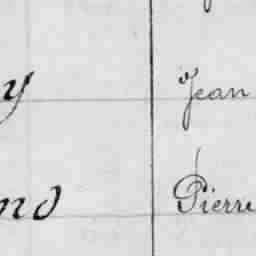 y Jean
nd Pierre